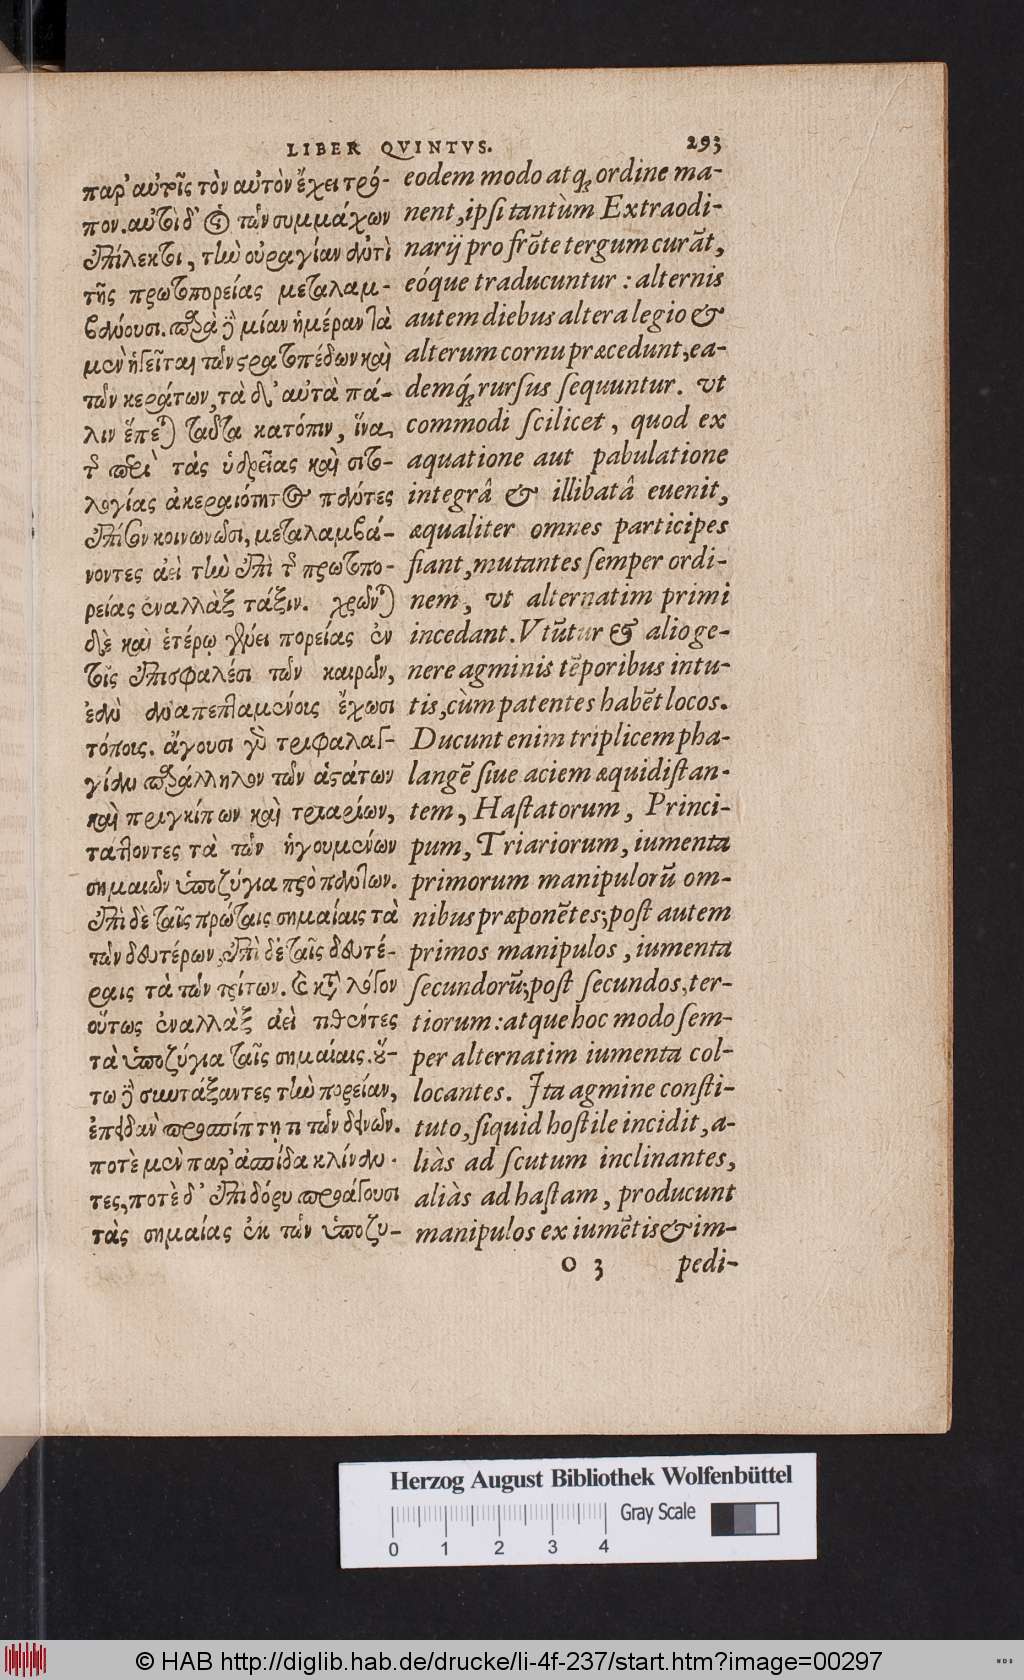 LIBER QVINTVS. 293
παρ' αὐτοῖς τὸν αὐτὸν ἔχει τρό-
πον. αὐτοὶ δ' οἱ τῶν συμμάχων
ἐπίλεκτοι, τὴν οὐραγίαν ἀντὶ
τῆς πρωτοπορείας μεταλαμ-
βάνουσι. παρὰ ἢ μίαν ἡμέραν τὰ
μὲν ἡγεῖται τῶν στρατοπέδων καὶ
τῶν κεράτων, τὰ δ' αὐτὰ πά-
λιν ἕπεται ταῦτα κατόπιν, ἵνα
τῆς περὶ τὰς ὑδρείας καὶ σιτο-
λογίας ἀκεραιότητος πάντες
ἐπίσον κοινωνῶσι, μεταλαμβά-
νοντες ἀεὶ τὴν ἐπὶ τῆς πρωτοπο-
ρείας ἐναλλὰξ τάξιν. χρῶνται
δὲ καὶ ἑτέρῳ γένει πορείας ἐν
τοῖς ἐπισφαλέσι τῶν καιρῶν,
ἐὰν ἀναπεπταμένοις ἔχωσι
τόποις. ἄγουσι γὰρ τριφαλαγ-
γίαν παράλληλον τῶν ἀστάτων
καὶ πριγκίπων καὶ τριαρίων,
τάττοντες τὰ τῶν ἡγουμένων
σημαιῶν ὑποζύγια πρὸ πάντων.
ἐπὶ δὲ ταῖς πρώταις σημαίαις τὰ
τῶν δευτέρων, ἐπὶ δὲ ταῖς δευτέ-
ραις τὰ τῶν τρίτων. καὶ κατὰ λόγον
οὕτως ἐναλλὰξ ἀεὶ τιθέντες
τὰ ὑποζύγια ταῖς σημαίαις. οὕ-
τω ἢ συντάξαντες τὴν πορείαν,
ἐπειδὰν προσπίπτῃ τι τῶν δεινῶν.
ποτὲ μὲν παρ' ἀσπίδα κλίναν-
τες, ποτὲ δ' ἐπὶ δόρυ προάγουσι
τὰς σημαίας ἐκ τῶν ὑποζυ-
eodem modo atq; ordine ma-
nent, ipsi tantùm Extraodi-
narij pro frõte tergum curãt,
eóque traducuntur : alternis
autem diebus altera legio &
alterum cornu præcedunt, ea-
demq́; rursus sequuntur. vt
commodi scilicet, quod ex
aquatione aut pabulatione
integrâ & illibatâ euenit,
æqualiter omnes participes
fiant, mutantes semper ordi-
nem, vt alternatim primi
incedant. Vtũtur & alio ge-
nere agminis tẽporibus intu-
tis, cùm patentes habẽt locos.
Ducunt enim triplicem pha-
langẽ siue aciem æquidistan-
tem, Hastatorum, Princi-
pum, Triariorum, iumenta
primorum manipulorũ om-
nibus præponẽtes; post autem
primos manipulos, iumenta
secundorũ; post secundos, ter-
tiorum: atque hoc modo sem-
per alternatim iumenta col-
locantes. Ita agmine consti-
tuto, siquid hostile incidit, a-
liàs ad scutum inclinantes,
aliàs ad hastam, producunt
manipulos ex iumẽtis & im-
O 3 pedi-
Herzog August Bibliothek Wolfenbüttel
Gray Scale
0 1 2 3 4
© HAB http://diglib.hab.de/drucke/li-4f-237/start.htm?image=00297